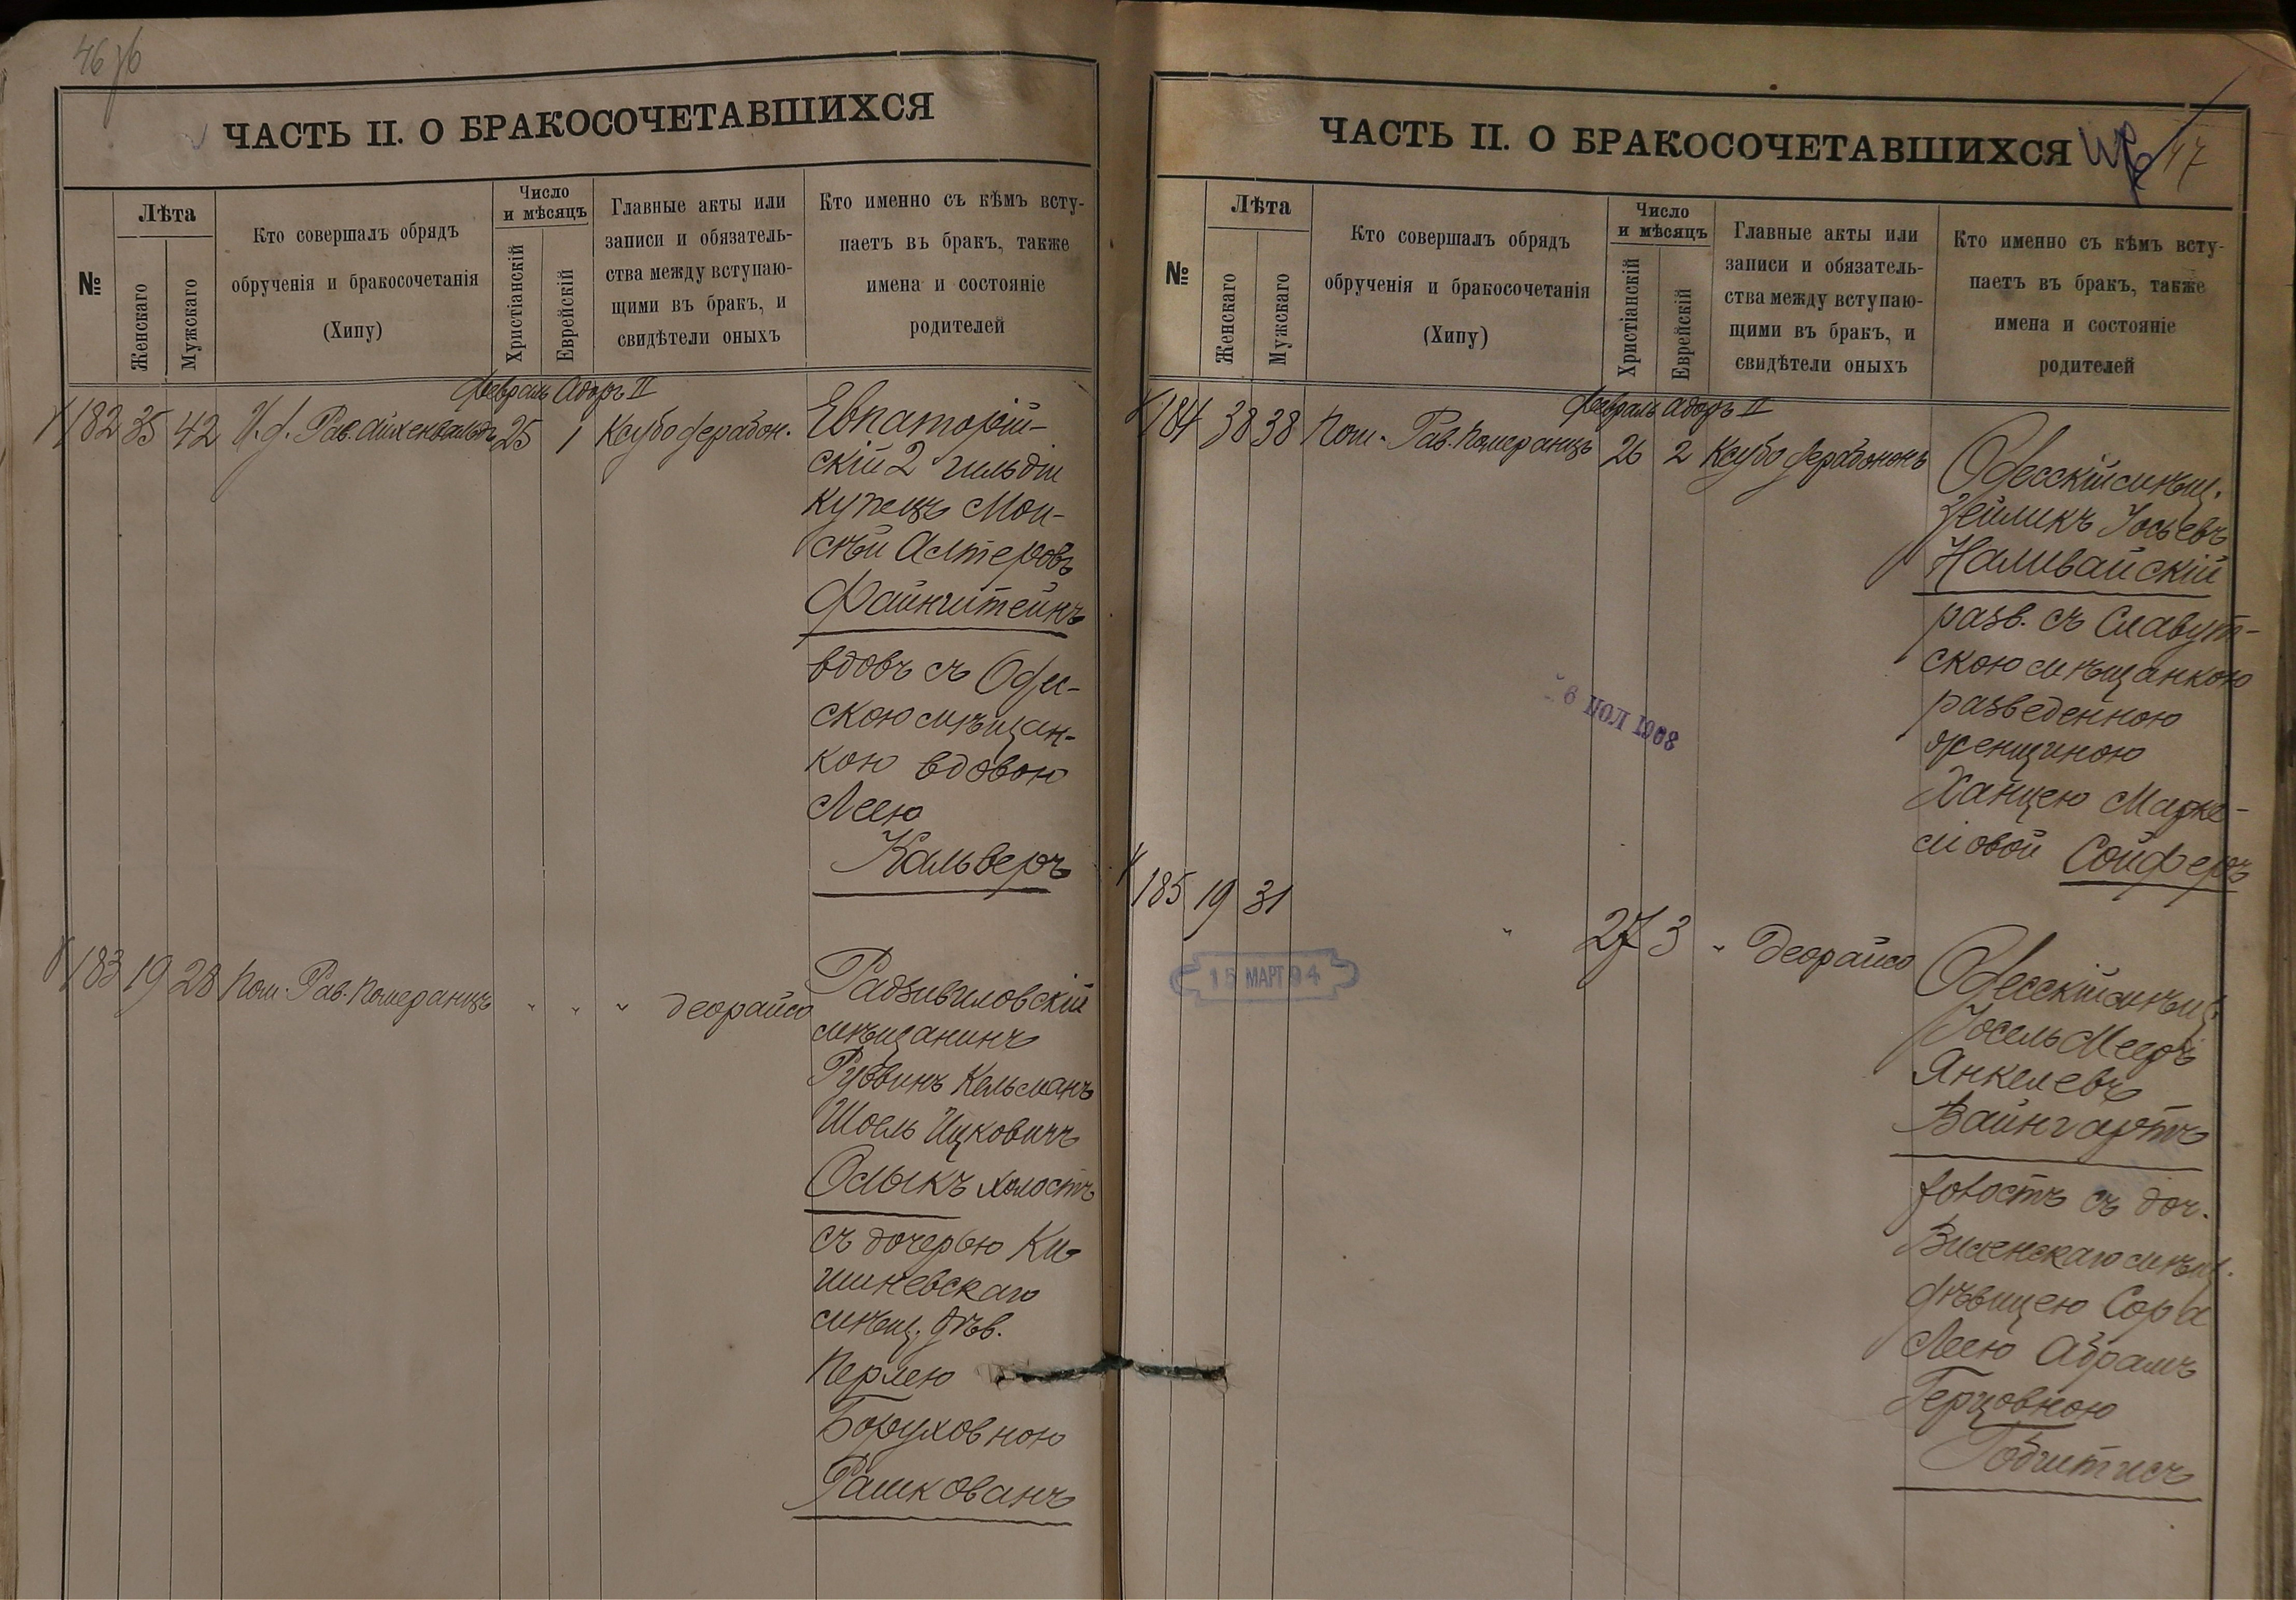 46 об
ЧАСТЬ II. О БРАКОСОЧЕТАВШИХСЯ
№
Лѣта
Женскаго
Мужскаго
Кто совершалъ обрядъ
обрученія и бракосочетанія
(Хипу)
Число
и мѣсяцъ
Христіанскій
Еврейскій
Главные акты или
записи и обязатель-
ства между вступаю-
щими въ бракъ, и
свидѣтели оныхъ
Кто именно съ кѣмъ всту-
паетъ въ бракъ, также
имена и состояніе
родителей
Февраль Адаръ II
182 35 42 И.д. Рав. Айхенвальдъ 25 1 Ксубо дерабон.
Евпаторій-
скій 2 гильдіи
купецъ Мои-
сѣй Алтеровъ
Файнштейнъ
вдовъ съ Одес-
скою мѣщан-
кою вдовою
Леею
Кальверъ
183 19 28 Пом. Рав. Померанцъ " " " деорайсо
Радзивиловскій
мѣщанинъ
Рувинъ Кельманъ
Шоель Ицковичъ
Олыкъ холостъ
съ дочерью Ки-
шиневскаго
мѣщ. дѣв.
Перлею
Боруховною
Рашкованъ
ЧАСТЬ II. О БРАКОСОЧЕТАВШИХСЯ
47
№
Лѣта
Женскаго
Мужскаго
Кто совершалъ обрядъ
обрученія и бракосочетанія
(Хипу)
Число
и мѣсяцъ
Христіанскій
Еврейскій
Главные акты или
записи и обязатель-
ства между вступаю-
щими въ бракъ, и
свидѣтели оныхъ
Кто именно съ кѣмъ всту-
паетъ въ бракъ, также
имена и состояніе
родителей
Февраль Адаръ II
184 38 38 Пом. Рав. Померанцъ 26 2 Ксубо дерабононъ
Одесскій мѣщ.
Зейликъ Іосьевъ
Наливайскій
разв. съ Славут-
скою мѣщанкою
разведенною
женщиною
Ханцею Марке-
мовой Сойферъ
6 ИОЛ 1908
185 19 31 " 27 3 " деорайсо
15 МАРТ 94
Одесскій мѣщ.
Іосель Мееръ
Янкелевъ
Вайнгартъ
холостъ съ доч.
Виленскаго мѣщ.
дѣвицею Сора
Леею Абрамъ
Герцовною